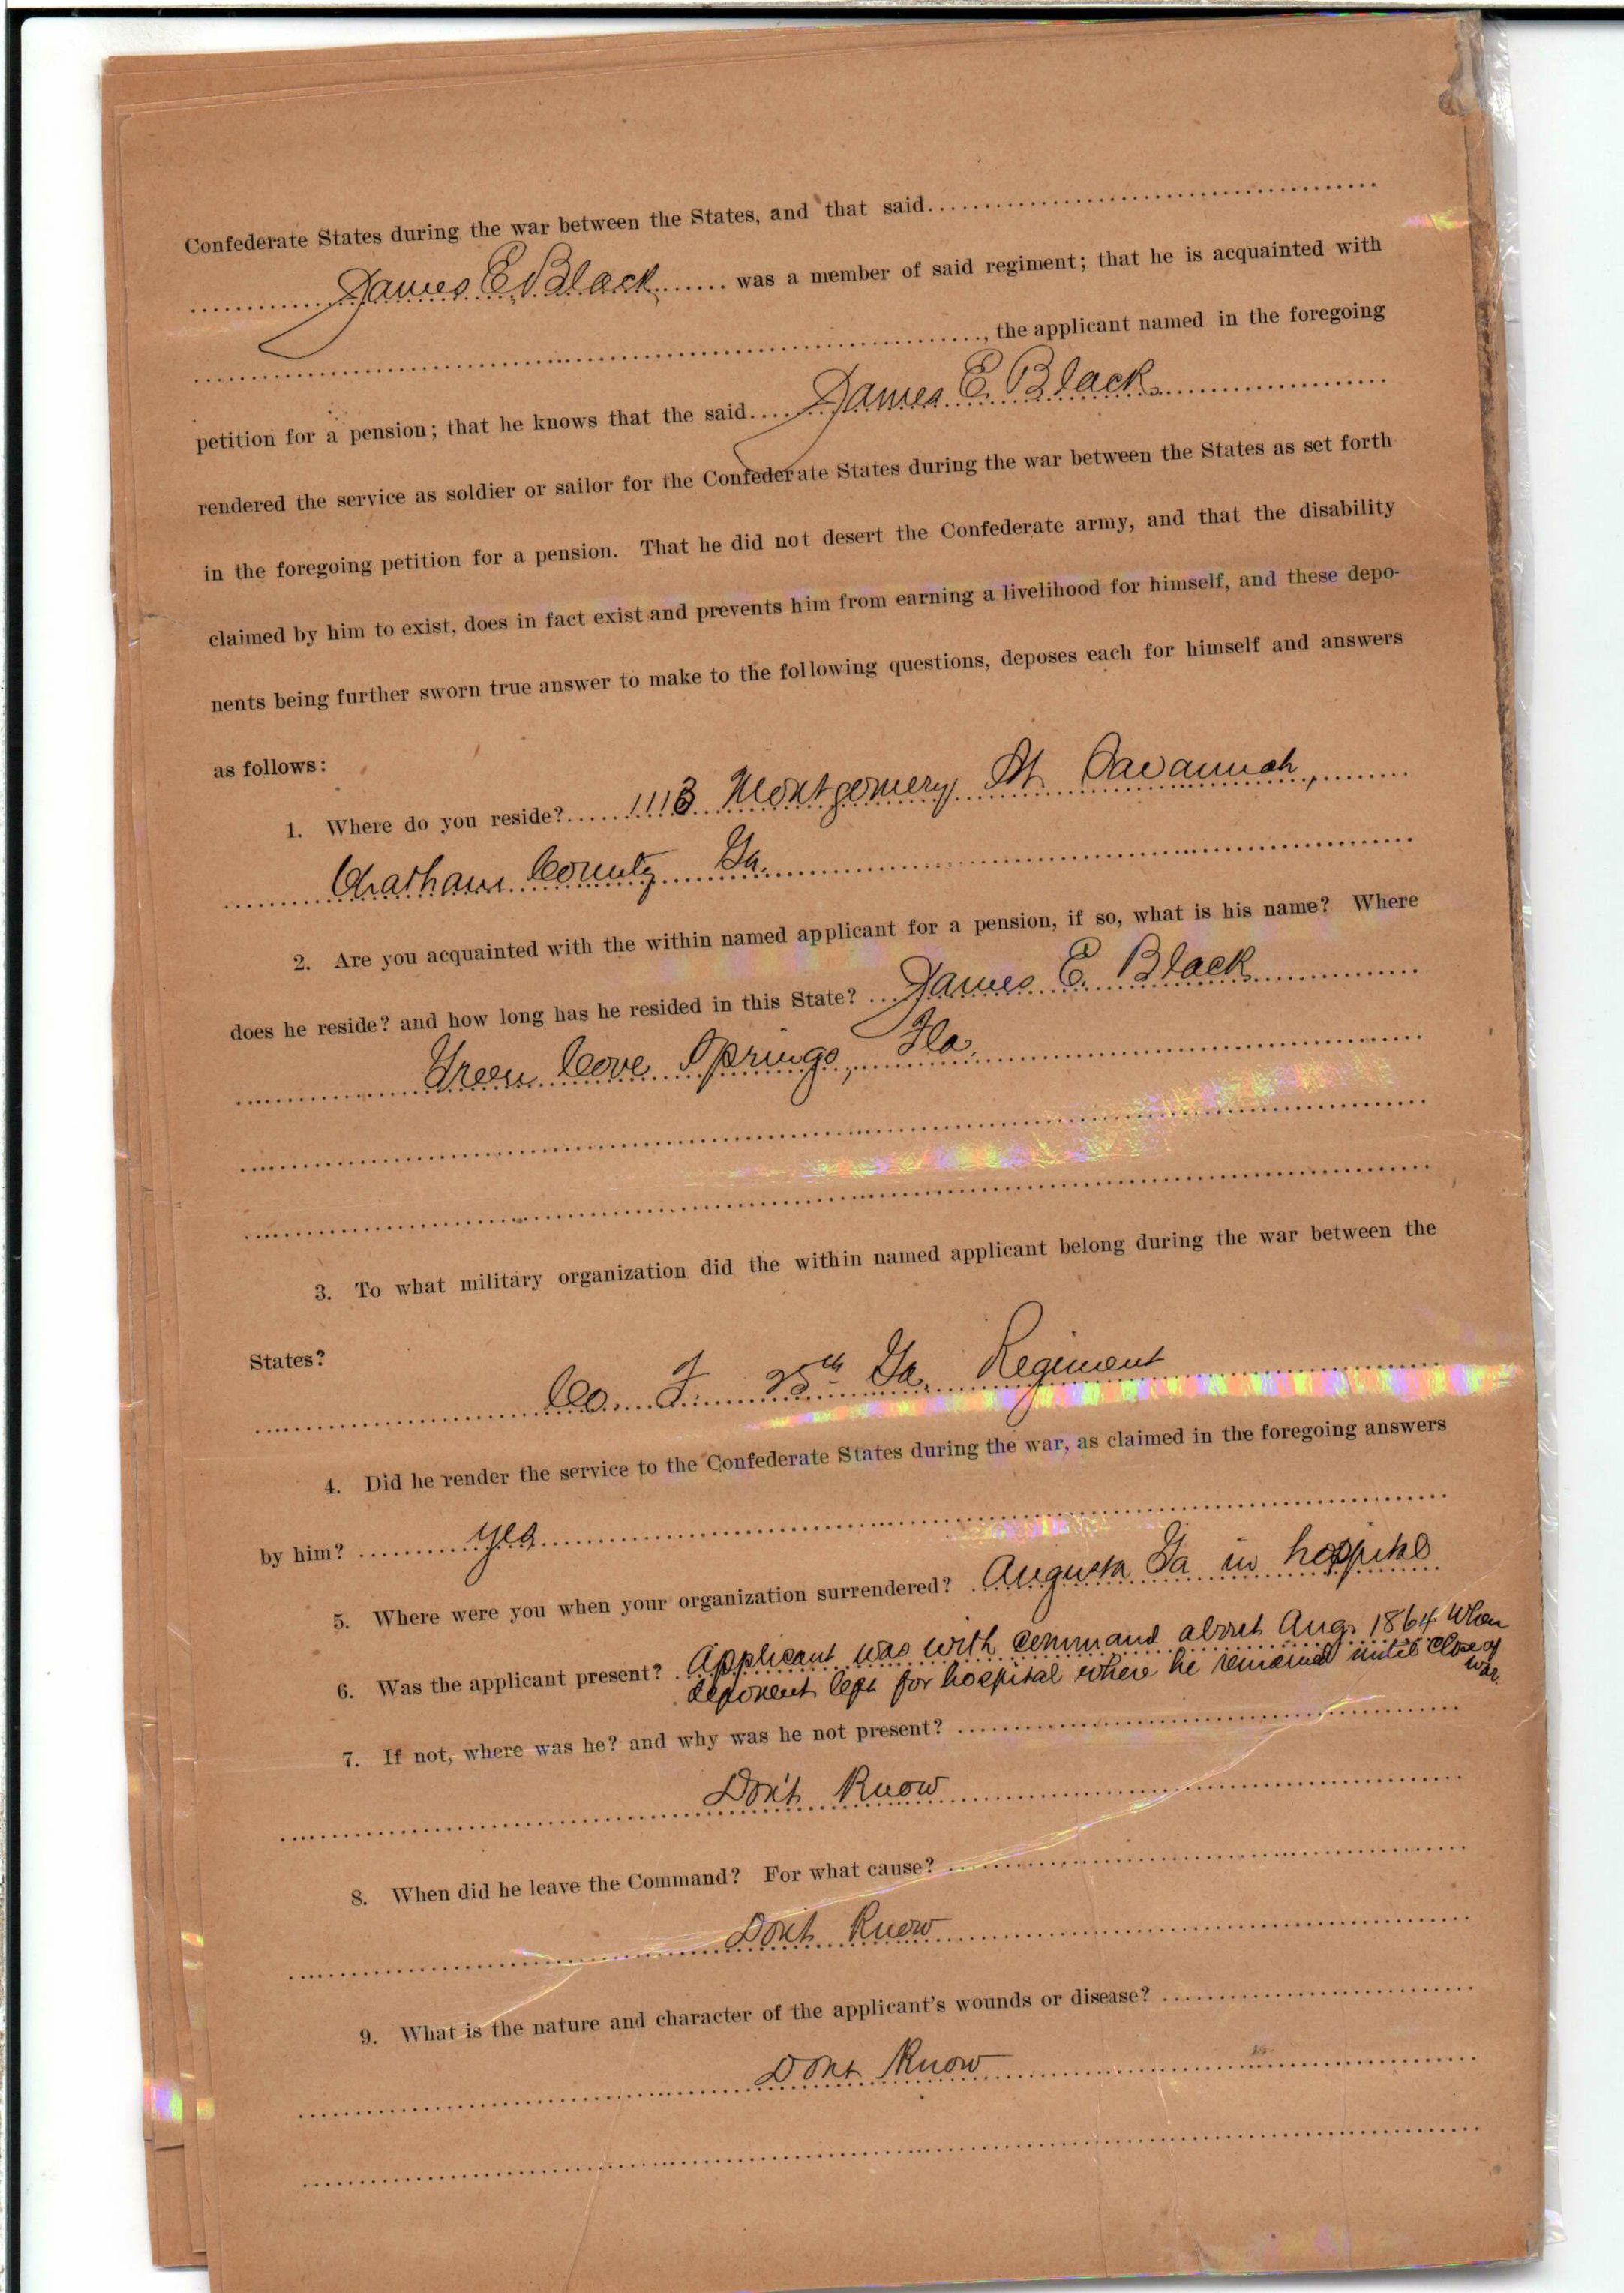 Confederate States during the war between the States, and that said
James E Black was a member of said regiment; that he is acquainted with
, the applicant named in the foregoing
petition for a pension; that he knows that the said James E. Black
rendered the service as soldier or sailor for the Confederate States during the war between the States as set forth
in the foregoing petition for a pension. That he did not desert the Confederate army, and that the disability
claimed by him to exist, does in fact exist and prevents him from earning a livelihood for himself, and these depo-
nents being further sworn true answer to make to the following questions, deposes each for himself and answers
as follows:
1. Where do you reside? 1113 Montgomery St. Savannah,
Chatham County Ga.
2. Are you acquainted with the within named applicant for a pension, if so, what is his name? Where
does he reside? and how long has he resided in this State? James E. Black
Green Cove Springs, Fla.
3. To what military organization did the within named applicant belong during the war between the
States?
Co. F. 25th Ga. Regiment
4. Did he render the service to the Confederate States during the war, as claimed in the foregoing answers
by him? yes
5. Where were you when your organization surrendered? Augusta Ga in hospital
6. Was the applicant present? Applicant was with command about Aug. 1864 when
deponent left for hospital where he remained until close of
war.
7. If not, where was he? and why was he not present?
Don't Know
8. When did he leave the Command? For what cause?
Don't Know
9. What is the nature and character of the applicant's wounds or disease?
Dont Know